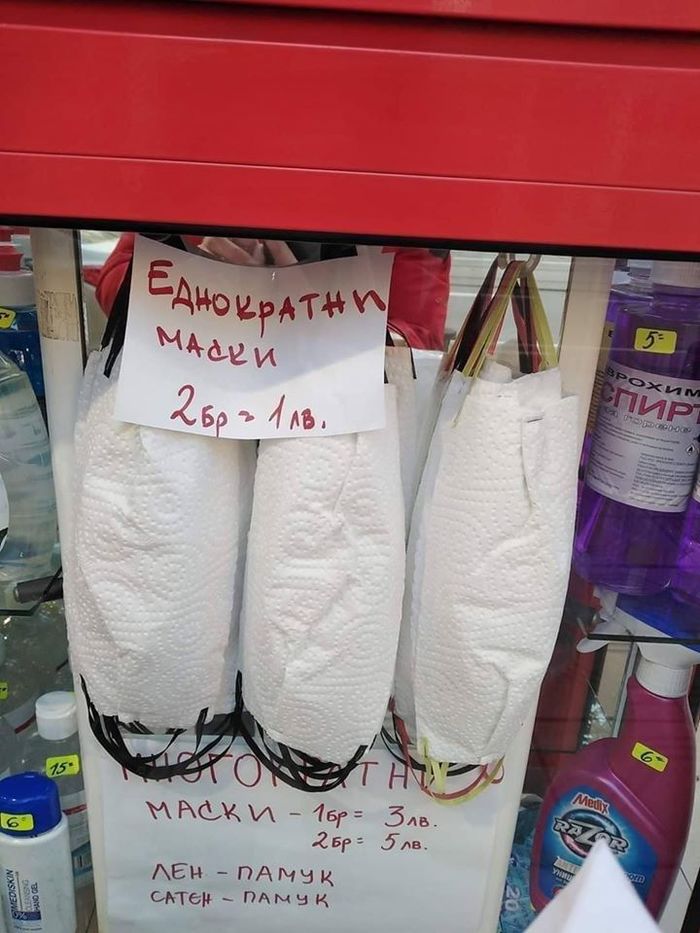 ЕДНОКРАТНИ
МАСКИ
2бр = 1лв.
5=
ВРОХИМ
СПИРТ
за горене
МНОГОКРАТНИ
МАСКИ - 1бр = 3лв.
2бр = 5лв.
ЛЕН - ПАМУК
САТЕН - ПАМУК
15=
6=
MEDISKIN
CLEANSING
HAND GEL
6=
Medix
RAZOR